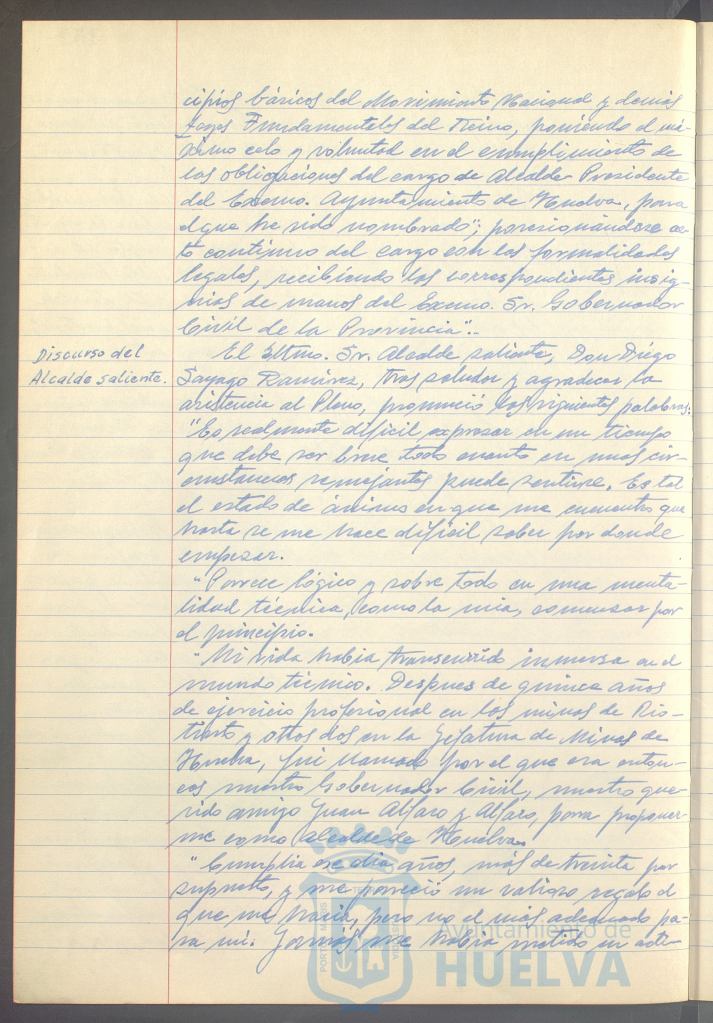 cipios básicos del Movimiento Nacional y demás
Leyes Fundamentales del Reino, poniendo el má-
ximo celo y voluntad en el cumplimiento de
las obligaciones del cargo de Alcalde Presidente
del Excmo. Ayuntamiento de Huelva, para
el que he sido nombrado"; posesionándose ac-
to continuo del cargo con las formalidades
legales, recibiendo las correspondientes insig-
nias de manos del Excmo. Sr. Gobernador
Civil de la Provincia".-
Discurso del
Alcalde saliente.
El Iltmo. Sr. Alcalde saliente, Don Diego
Sayago Ramírez, tras saludar y agradecer la
asistencia al Pleno, pronunció las siguientes palabras:
"Es realmente difícil expresar en un tiempo
que debe ser breve todo cuanto en unas cir-
cunstancias semejantes puede sentirse. Es tal
el estado de ánimo en que me encuentro, que
hasta se me hace difícil saber por donde
empezar.
"Parece lógico y sobre todo en una menta-
lidad técnica, como la mia, comenzar por
el principio.
"Mi vida habia transcurrido inmersa en el
mundo técnico. Despues de quince años
de ejercicio profesional en las minas de Rio-
tinto y otros dos en la Jefatura de Minas de
Huelva, fui llamado por el que era enton-
ces nuestro Gobernador Civil, nuestro que-
rido amigo Juan Alfaro y Alfaro, para proponer-
me como alcalde de Huelva.
"Cumplia ese dia años, más de treinta por
supuesto, y me pareció un valioso regalo el
que me hacia, pero no el más adecuado pa-
ra mi. Jamás me habia metido en acti-
Ayuntamiento de
HUELVA